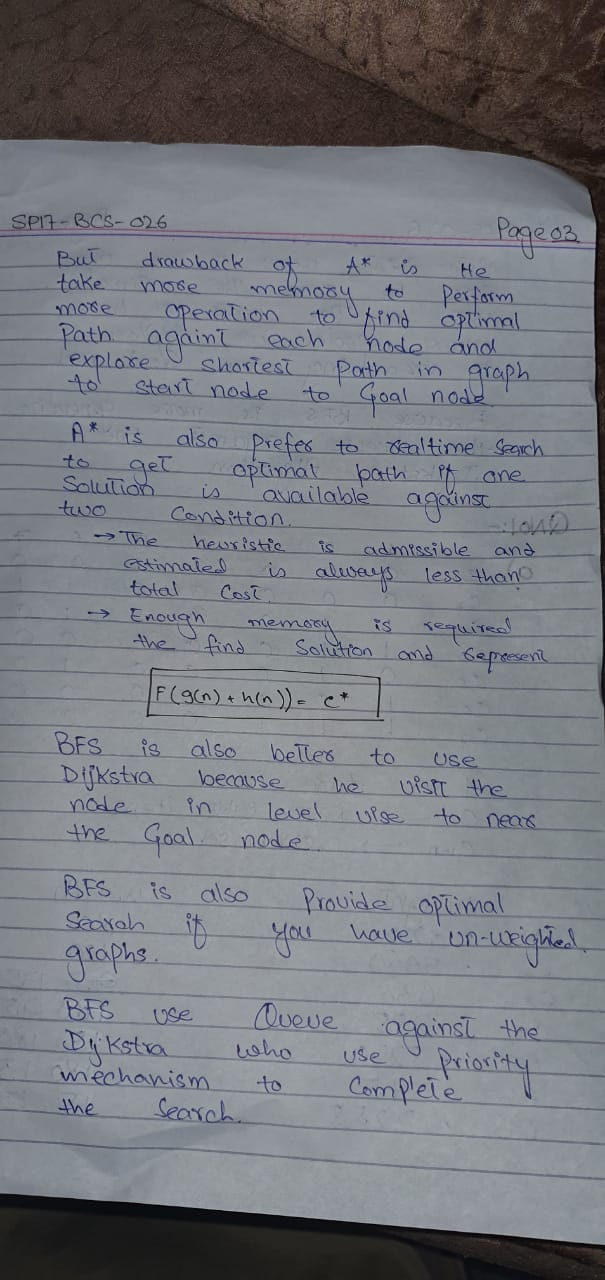 SP17-BCS-026
Page 03
But drawback of A* is He
take more memory to Perform
more operation to find optimal
Path againt each node and
explore shortest path in graph
to start node to Goal node
A* is also Prefer to realtime Search
to get optimal path if one
Solution is available against
two Condition.
→ The heuristic is admissible and
estimated is always less than
total Cost
→ Enough memory is required
the find Solution and represent
F(g(n) + h(n)) = c*
BFS is also better to use
Dijkstra because he visit the
node in level vise to near
the Goal node
BFS is also Provide optimal
Search if you have un-weighted
graphs.
BFS use Queue against the
Dijkstra who use Priority
mechanism to Complete
the Search.